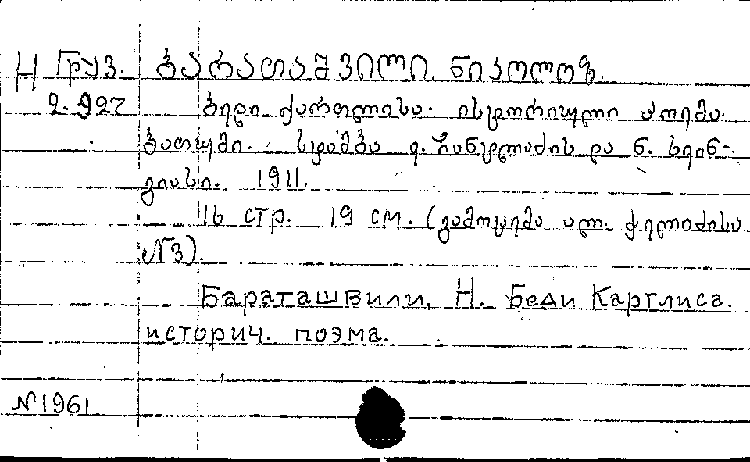 Н Груз. ბარათაშვილი ნიკოლოზ.
2.927 ბედი ქართლისა. ისტორიული პოემა.
ბათუმი. სტამბა დ. და ნ. ხვინ-
გიასი. 1911.
16 стр. 19 см. (გამოცემა ალ. ქელიძისა
№3).
Бараташвили, Н. Беди Картлиса.
историч. поэма.
№1961